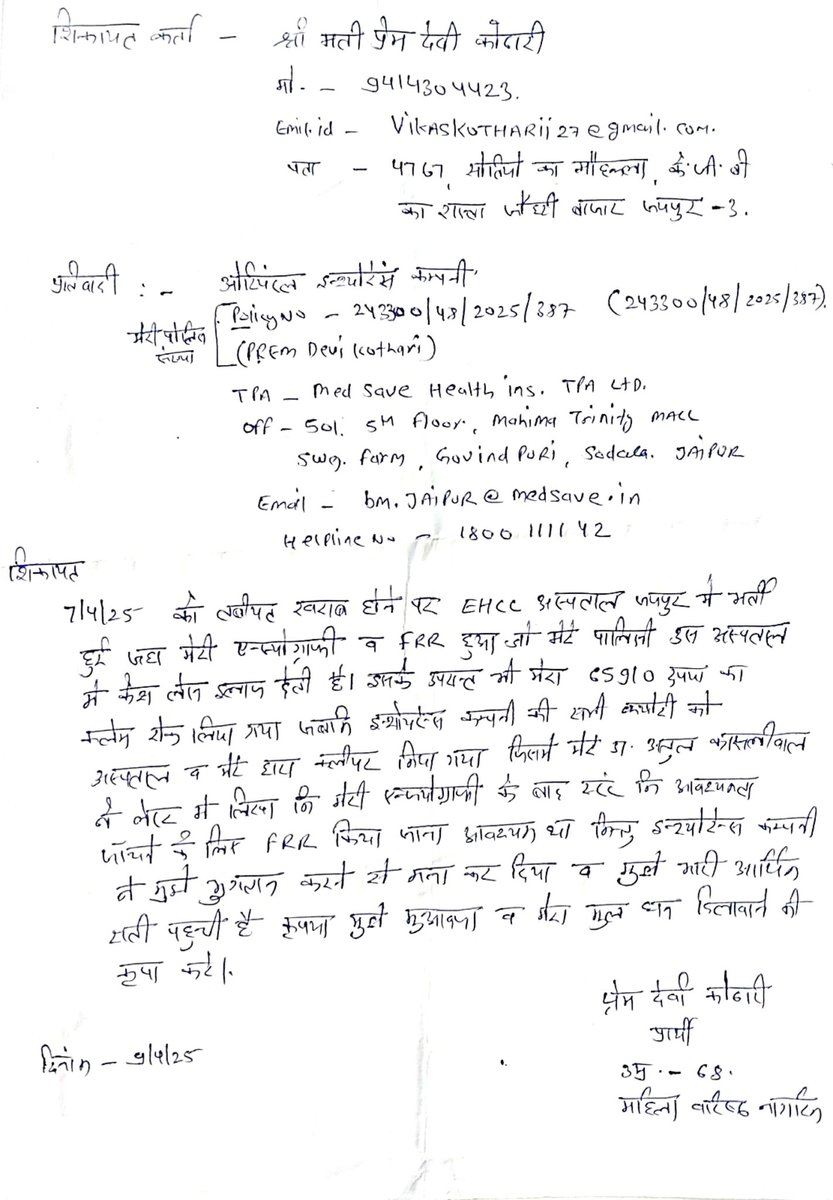 शिकायत कर्ता - श्री मती प्रेम देवी कोठारी
मो. - 9414304423.
Emil.id - VIKASKOTHARII27@gmail.com.
पता - 4767, मोतियो का मौहल्ला, के.जी.बी
का रास्ता जौहरी बाजार जयपुर -3.
प्रतिवादी : - ओरिएंटल इन्श्योरेंस कम्पनी
मेरी पोलिसी संख्या
Policy No - 243300/48/2025/387 (243300/48/2025/387).
(PREM Devi Kothari)
TPA - Med Save Health ins. TPA LTD.
Off - 501. 5th Floor, Mahima Trinity MALL
Swg. Farm, Govind PURI, Sodala. JAIPUR
Email - bm.JAIPUR@medsave.in
Helpline No - 1800 1111 42
शिकायत
7/4/25 को तबीयत खराब होने पर EHCC अस्पताल जयपुर मे भर्ती
हुई जहा मेरी एन्ज्योग्राफी व FRR हुया जो मेरे पालिसी इस अस्पताल
मे केश लेस इलाज देती है। इसके उपरान्त भी मेरा 65910 रुपय का
क्लेम रोक लिया गया जबकि इन्श्योरेन्स कम्पनी की सभी क्वायरी को
अस्पताल व मेरे द्वारा क्लीयर किया गया जिसमे मेरे डा. अतुल कासलीवाल
ने लेटर मे लिखा कि मेरी एन्जयोग्राफी के बाद स्टंट कि आवश्यकता
जॉचने के लिए FRR किया जाना आवश्यक था किन्तु इन्श्योरेन्स कम्पनी
ने मुझे भुगतान करने से मना कर दिया व मुझे भारी आर्थिक
सती पहुची है कृपया मुझे मुआवजा व मेरा मुल धन दिलावाने की
कृपा करे।
प्रेम देवी कोठारी
प्रार्थी
दिनांक - 9/4/25
उम्र. - 68.
महिला वरिष्ठ नागरिक